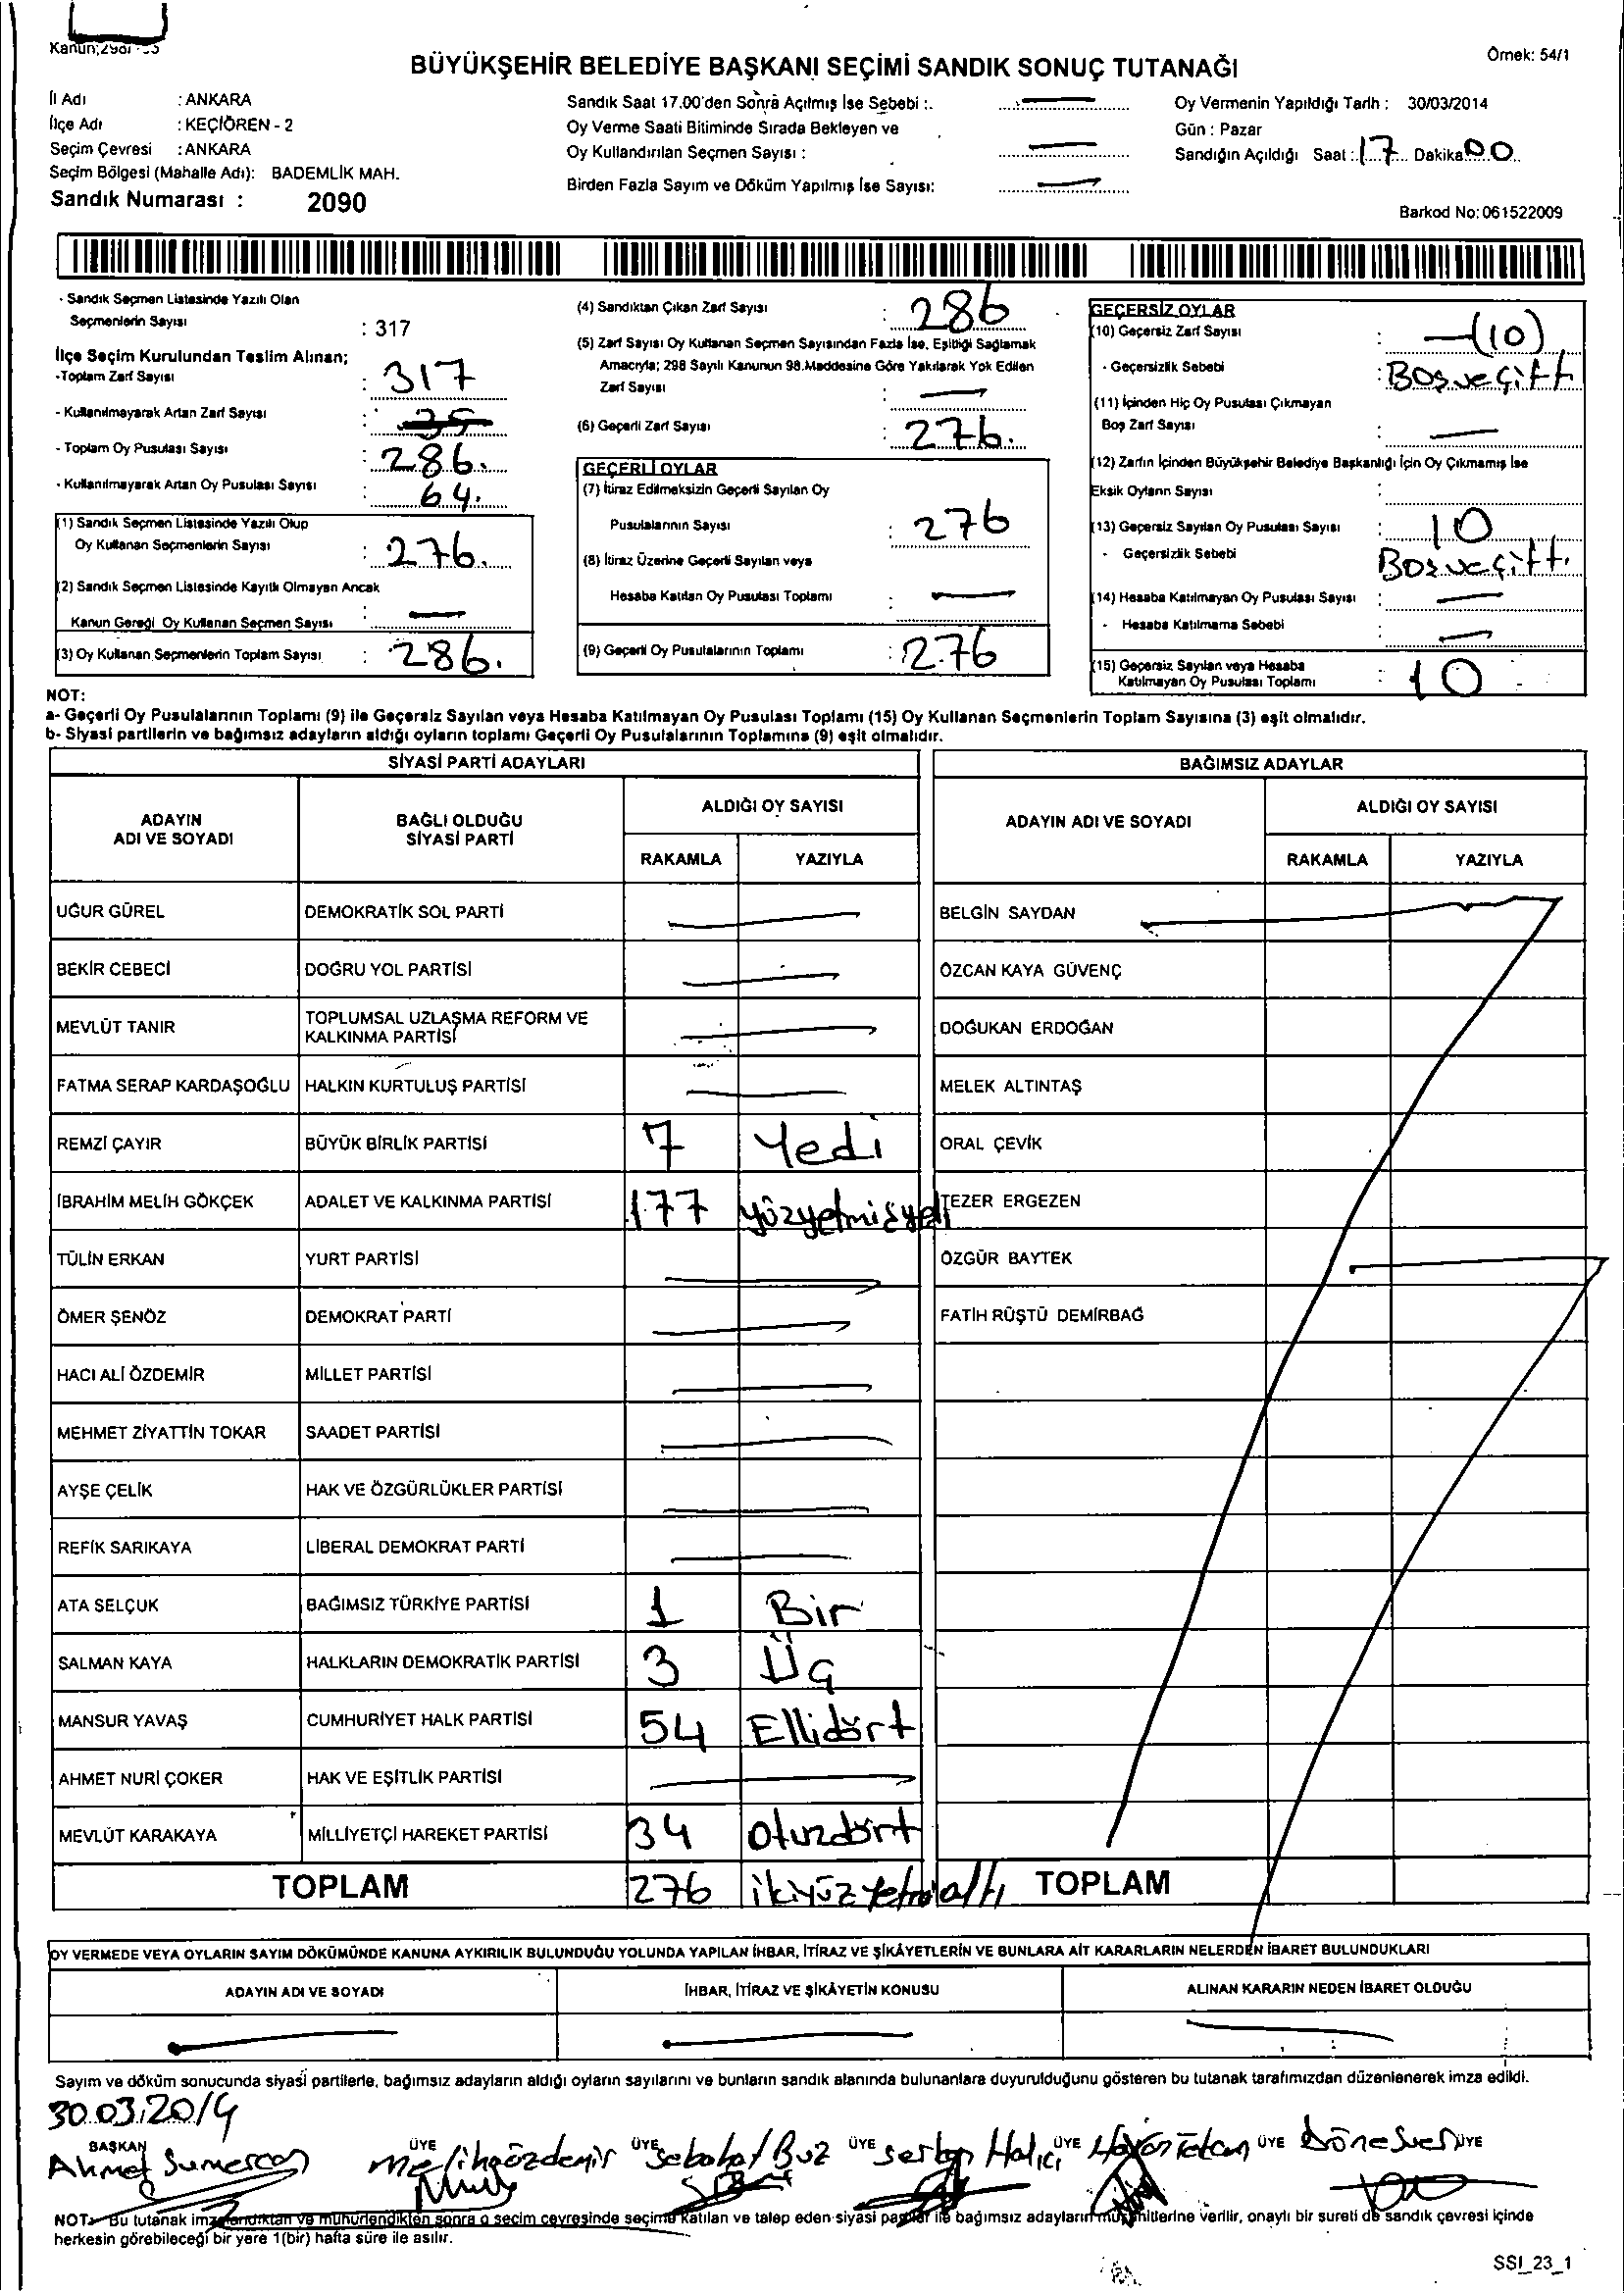 BÜYÜKŞEHİR BELEDİYE BAŞKANI SEÇİMİ SANDIK SONUÇ TUTANAĞI
Örnek: 54/1
İl Adı : ANKARA
İlçe Adı : KEÇİÖREN - 2
Seçim Çevresi : ANKARA
Seçim Bölgesi (Mahalle Adı): BADEMLİK MAH.
Sandık Numarası : 2090
Sandık Saat 17.00'den Sonra Açılmış İse Sebebi :.
Oy Verme Saati Bitiminde Sırada Bekleyen ve
Oy Kullandırılan Seçmen Sayısı :
Birden Fazla Sayım ve Döküm Yapılmış İse Sayısı:
Oy Vermenin Yapıldığı Tarih : 30/03/2014
Gün : Pazar
Sandığın Açıldığı Saat : 17 Dakika 00
Barkod No: 061522009
- Sandık Seçmen Listesinde Yazılı Olan
Seçmenlerin Sayısı : 317
İlçe Seçim Kurulundan Teslim Alınan;
-Toplam Zarf Sayısı : 317
- Kullanılmayarak Artan Zarf Sayısı : 35
- Toplam Oy Pusulası Sayısı : 286.
- Kullanılmayarak Artan Oy Pusulası Sayısı : 64.
(1) Sandık Seçmen Listesinde Yazılı Olup
Oy Kullanan Seçmenlerin Sayısı : 276.
(2) Sandık Seçmen Listesinde Kayıtlı Olmayan Ancak
Kanun Gereği Oy Kullanan Seçmen Sayısı :
(3) Oy Kullanan Seçmenlerin Toplam Sayısı : 286.
(4) Sandıktan Çıkan Zarf Sayısı : 286
(5) Zarf Sayısı Oy Kullanan Seçmen Sayısından Fazla İse, Eşitliği Sağlamak
Amacıyla; 298 Sayılı Kanunun 98.Maddesine Göre Yakılarak Yok Edilen
Zarf Sayısı :
(6) Geçerli Zarf Sayısı : 276.
GEÇERLİ OYLAR
(7) İtiraz Edilmeksizin Geçerli Sayılan Oy
Pusulalarının Sayısı : 276
(8) İtiraz Üzerine Geçerli Sayılan veya
Hesaba Katılan Oy Pusulası Toplamı :
(9) Geçerli Oy Pusulalarının Toplamı : 276
GEÇERSİZ OYLAR
(10) Geçersiz Zarf Sayısı : —(10)
- Geçersizlik Sebebi : Boş ve çift
(11) İçinden Hiç Oy Pusulası Çıkmayan
Boş Zarf Sayısı :
(12) Zarfın İçinden Büyükşehir Belediye Başkanlığı İçin Oy Çıkmamış İse
Eksik Oyların Sayısı :
(13) Geçersiz Sayılan Oy Pusulası Sayısı : 10
- Geçersizlik Sebebi Boş ve çift.
(14) Hesaba Katılmayan Oy Pusulası Sayısı :
- Hesaba Katılmama Sebebi :
(15) Geçersiz Sayılan veya Hesaba
Katılmayan Oy Pusulası Toplamı : 10
NOT:
a- Geçerli Oy Pusulalarının Toplamı (9) ile Geçersiz Sayılan veya Hesaba Katılmayan Oy Pusulası Toplamı (15) Oy Kullanan Seçmenlerin Toplam Sayısına (3) eşit olmalıdır.
b- Siyasi partilerin ve bağımsız adayların aldığı oyların toplamı Geçerli Oy Pusulalarının Toplamına (9) eşit olmalıdır.
SİYASİ PARTİ ADAYLARI
ADAYIN ADI VE SOYADI
BAĞLI OLDUĞU SİYASİ PARTİ
ALDIĞI OY SAYISI
RAKAMLA YAZIYLA
UĞUR GÜREL DEMOKRATİK SOL PARTİ
BEKİR CEBECİ DOĞRU YOL PARTİSİ
MEVLÜT TANIR TOPLUMSAL UZLAŞMA REFORM VE
KALKINMA PARTİSİ
FATMA SERAP KARDAŞOĞLU HALKIN KURTULUŞ PARTİSİ
REMZİ ÇAYIR BÜYÜK BİRLİK PARTİSİ 7 Yedi
İBRAHİM MELİH GÖKÇEK ADALET VE KALKINMA PARTİSİ 177 yüzyetmişyedi
TÜLİN ERKAN YURT PARTİSİ
ÖMER ŞENÖZ DEMOKRAT PARTİ
HACI ALİ ÖZDEMİR MİLLET PARTİSİ
MEHMET ZİYATTİN TOKAR SAADET PARTİSİ
AYŞE ÇELİK HAK VE ÖZGÜRLÜKLER PARTİSİ
REFİK SARIKAYA LİBERAL DEMOKRAT PARTİ
ATA SELÇUK BAĞIMSIZ TÜRKİYE PARTİSİ 1 Bir
SALMAN KAYA HALKLARIN DEMOKRATİK PARTİSİ 3 Üç
MANSUR YAVAŞ CUMHURİYET HALK PARTİSİ 54 Ellidört
AHMET NURİ ÇOKER HAK VE EŞİTLİK PARTİSİ
MEVLÜT KARAKAYA MİLLİYETÇİ HAREKET PARTİSİ 34 Otuzdört
TOPLAM 276
BAĞIMSIZ ADAYLAR
ADAYIN ADI VE SOYADI
ALDIĞI OY SAYISI
RAKAMLA YAZIYLA
BELGİN SAYDAN
ÖZCAN KAYA GÜVENÇ
DOĞUKAN ERDOĞAN
MELEK ALTINTAŞ
ORAL ÇEVİK
TEZER ERGEZEN
ÖZGÜR BAYTEK
FATİH RÜŞTÜ DEMİRBAĞ
TOPLAM
OY VERMEDE VEYA OYLARIN SAYIM DÖKÜMÜNDE KANUNA AYKIRILIK BULUNDUĞU YOLUNDA YAPILAN İHBAR, İTİRAZ VE ŞİKÂYETLERİN VE BUNLARA AİT KARARLARIN NELERDEN İBARET BULUNDUKLARI
ADAYIN ADI VE SOYADI İHBAR, İTİRAZ VE ŞİKÂYETİN KONUSU ALINAN KARARIN NEDEN İBARET OLDUĞU
Sayım ve döküm sonucunda siyasi partilerle, bağımsız adayların aldığı oyların sayılarını ve bunların sandık alanında bulunanlara duyurulduğunu gösteren bu tutanak tarafımızdan düzenlenerek imza edildi.
30.03.2014
BAŞKAN ÜYE ÜYE ÜYE ÜYE ÜYE ÜYE
Ahmet Melih özdemir Sebahat Buz Serkan
NOT: Bu tutanak imzalandıktan ve mühürlendikten sonra o seçim çevresinde seçime katılan ve talep eden siyasi partiler ile bağımsız adayların müşahitlerine verilir, onaylı bir sureti de sandık çevresi içinde
herkesin görebileceği bir yere 1(bir) hafta süre ile asılır.
SSI_23_1